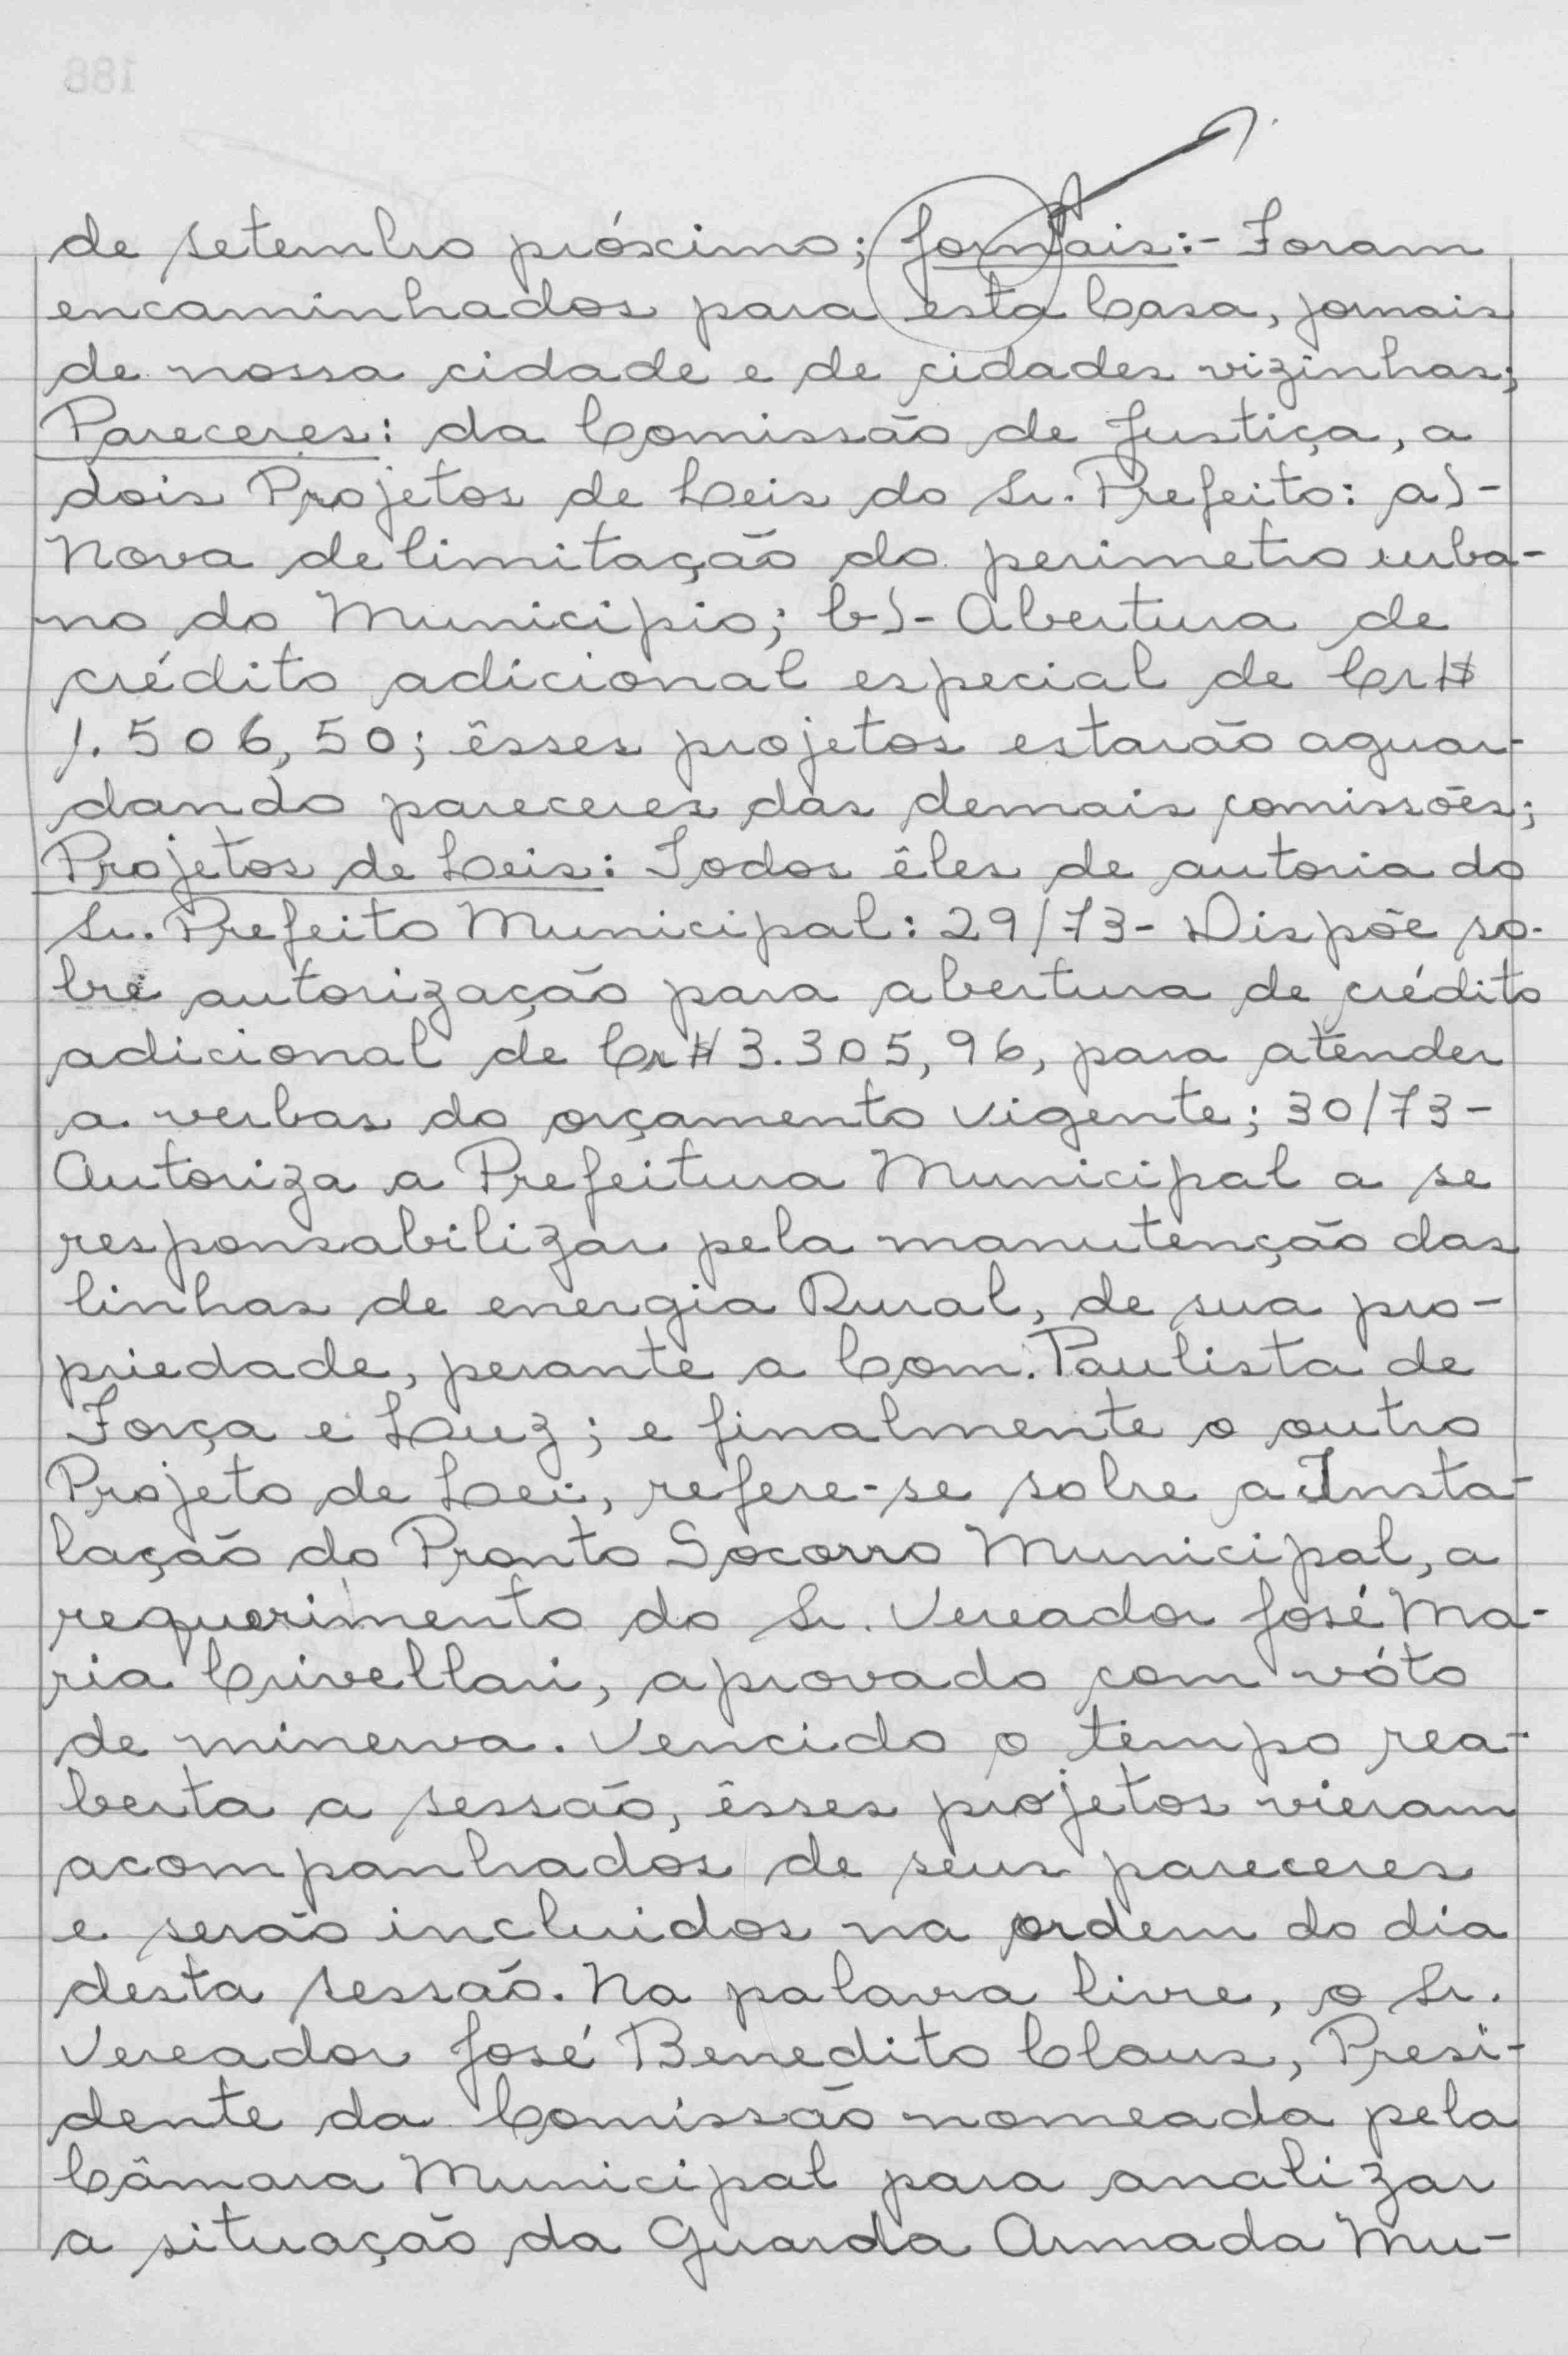 de setembro próximo; Jornais:- Foram
encaminhados para esta Casa, jornais
de nossa cidade e de cidades vizinhas;
Pareceres: da Comissão de Justiça, a
dois Projetos de Leis do Sr. Prefeito: a)-
Nova delimitação do perimetro urba-
no do Municipio; b)- Abertura de
crédito adicional especial de Cr$
1.506,50; êsses projetos estarão aguar-
dando pareceres das demais comissões;
Projetos de Leis: Todos êles de autoria do
Sr. Prefeito Municipal: 29/73- Dispõe so-
bre autorização para abertura de crédito
adicional de Cr$ 3.305,96, para atender
a verbas do orçamento vigente; 30/73-
Autoriza a Prefeitura Municipal a se
responsabilizar pela manutenção das
linhas de energia Rural, de sua pro-
priedade, perante a Com. Paulista de
Força e Luz; e finalmente o outro
Projeto de Lei, refere-se sobre a Insta-
lação do Pronto Socorro Municipal, a
requerimento do Sr. Vereador José Ma-
ria Crivellari, aprovado com vóto
de minerva. Vencido o tempo rea-
berta a sessão, êsses projetos vieram
acompanhados de seus pareceres
e serão incluidos na ordem do dia
desta sessão. Na palavra livre, o Sr.
Vereador José Benedito Claus, Presi-
dente da Comissão nomeada pela
Câmara Municipal para analizar
a situação da Guarda Armada Mu-